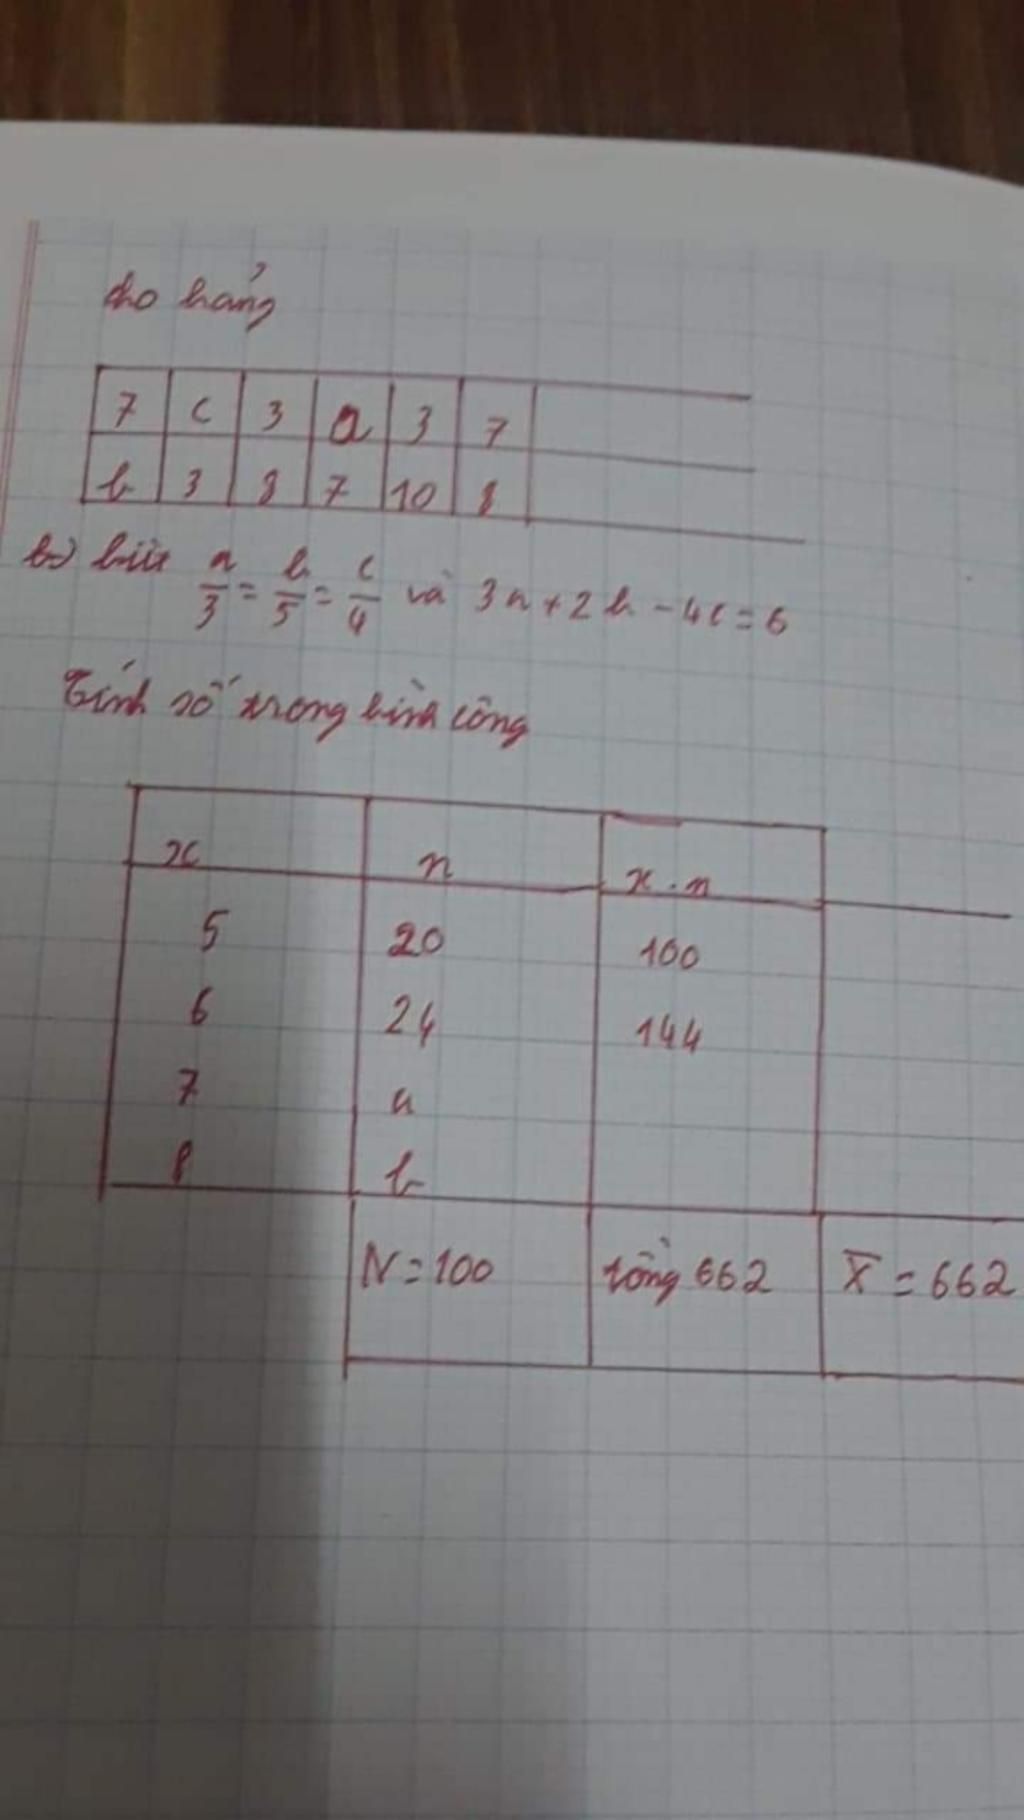 cho bảng
7 c 3 a 3 7
b 3 8 7 10 8
b) biết a/3 = b/5 = c/4 và 3a + 2b - 4c = 6
Tính số trung bình cộng
x n x.n
5 20 100
6 24 144
7 a
8 b
N = 100 tổng 662 X̄ = 662